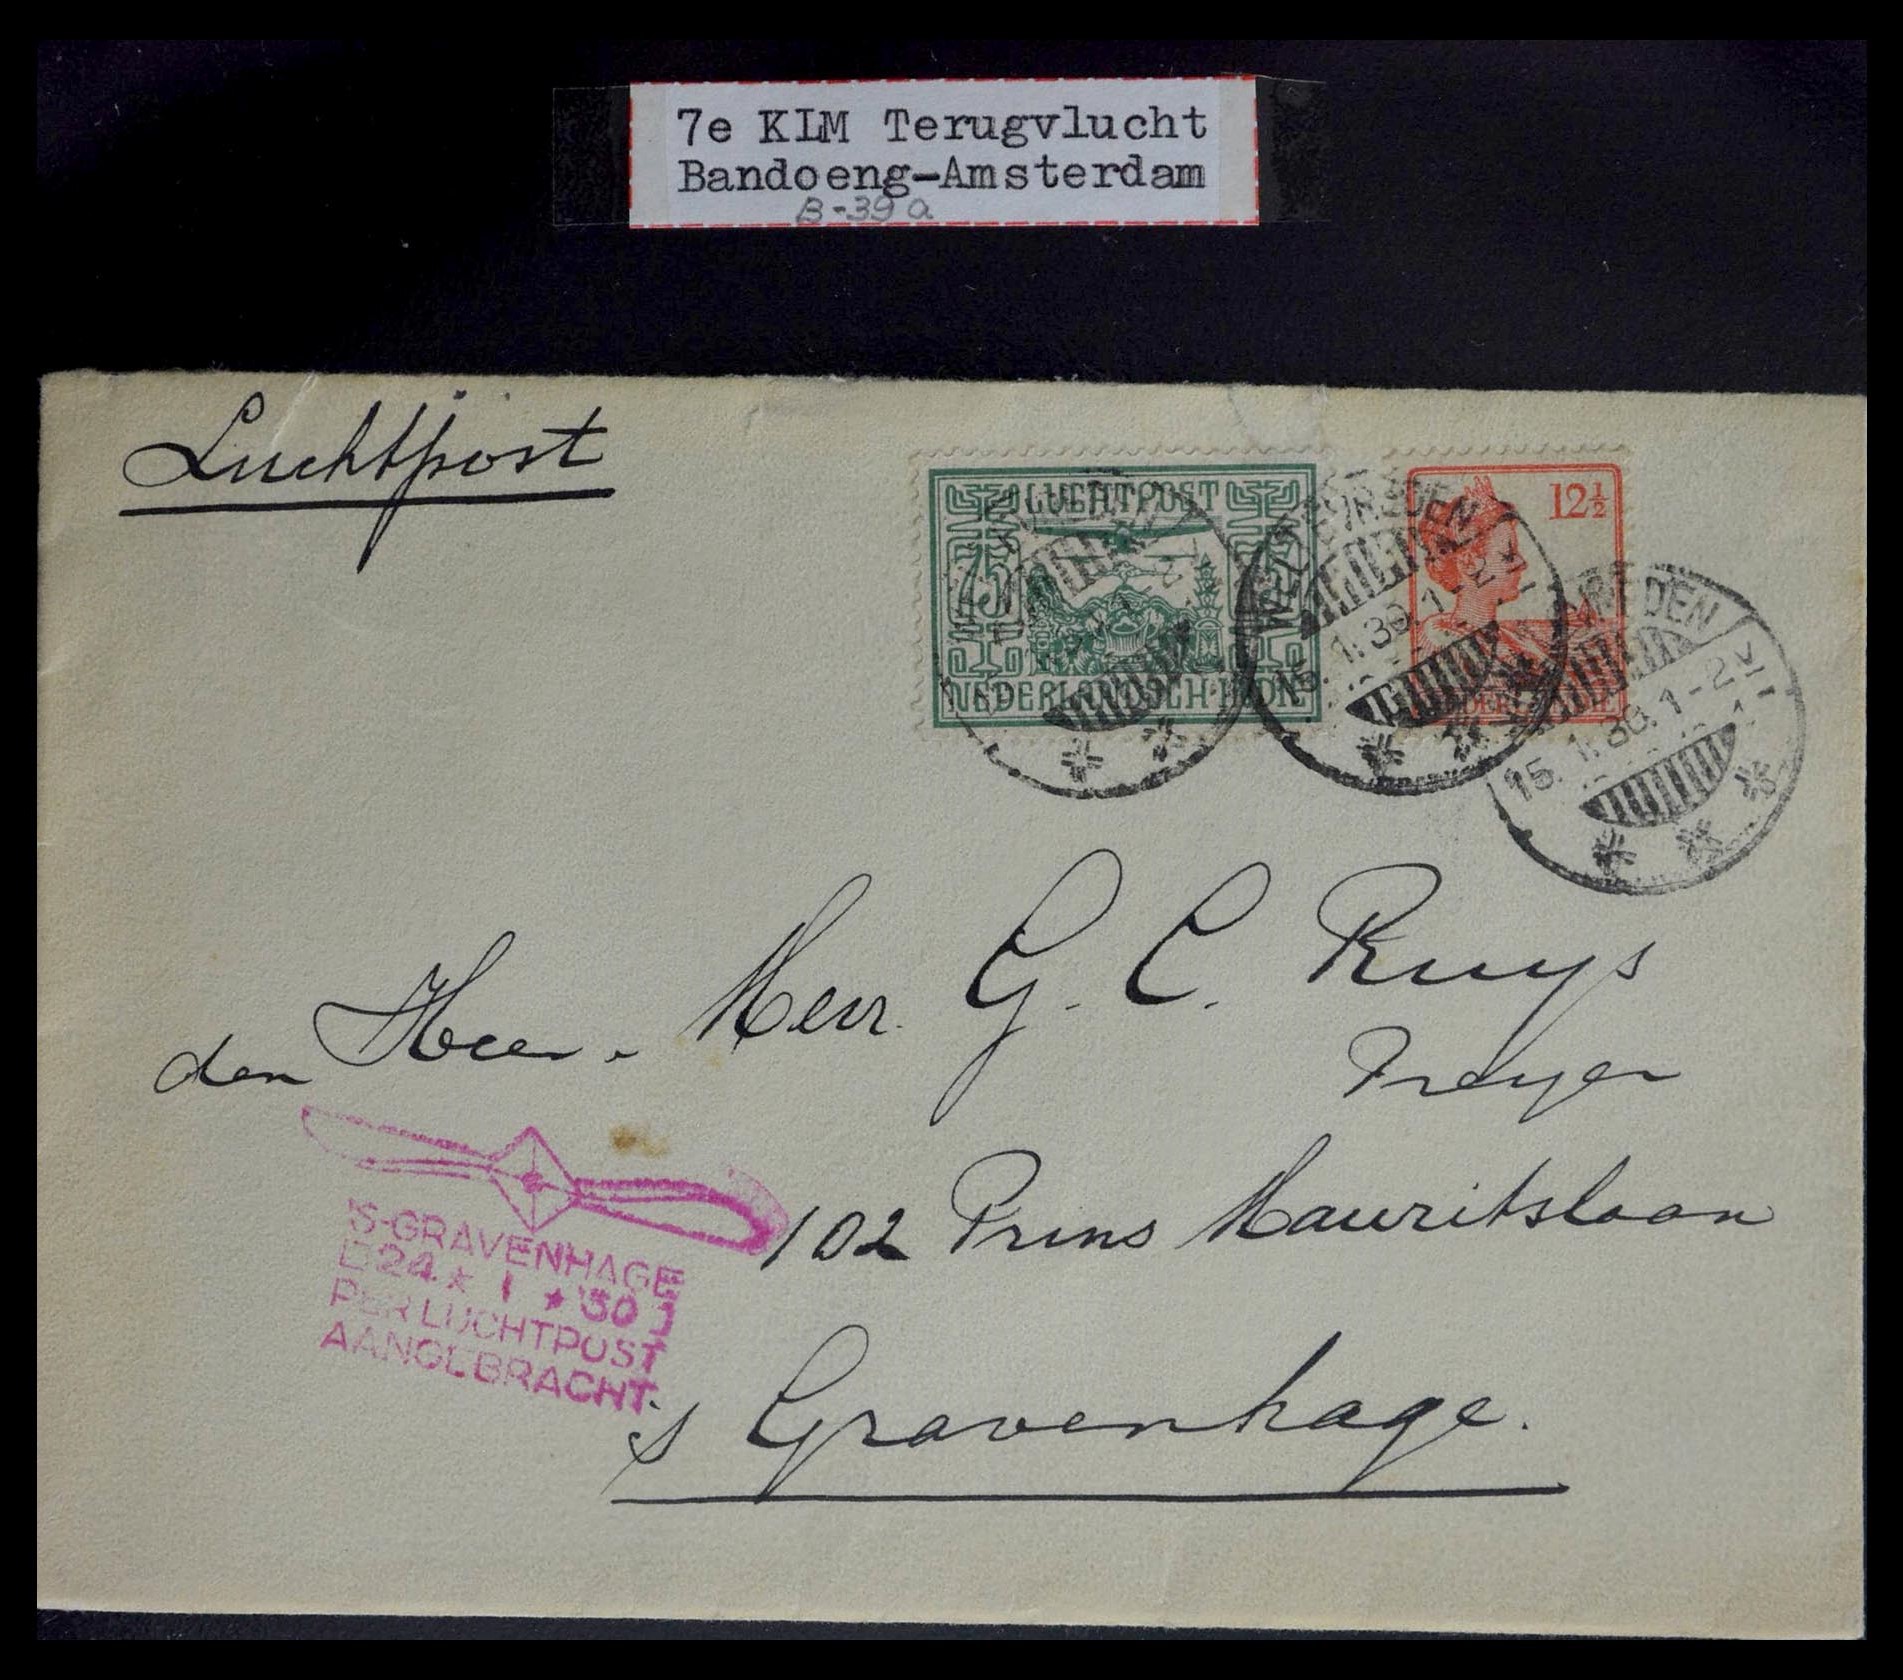 7e KLM Terugvlucht
Bandoeng-Amsterdam
B-39 a
Luchtpost
LUCHTPOST
75
NEDERLANDSCH-INDIË
12½
15.1.30.1-2
VREDEN
15.1.30.1-2
den Heer. Mevr. G. C. Ruys
Treyer
102 Prins Mauritslaan
's Gravenhage.
'S-GRAVENHAGE
24 ★ 1 ★ '30
PER LUCHTPOST
AANGEBRACHT.